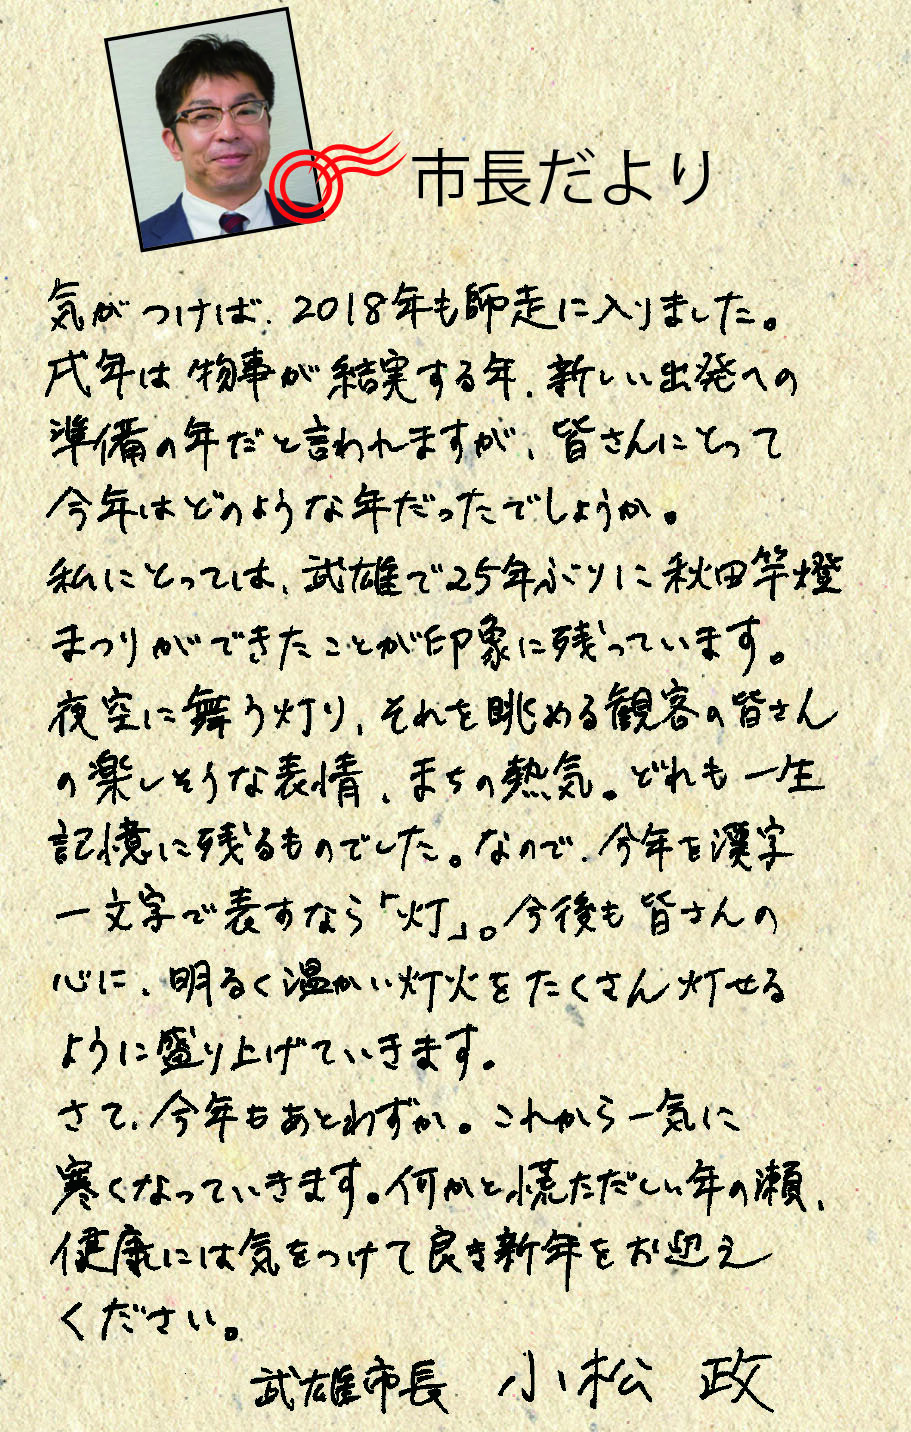 市長だより
気がつけば、2018年も師走に入りました。
戌年は物事が結実する年、新しい出発への
準備の年だと言われますが、皆さんにとって
今年はどのような年だったでしょうか。
私にとっては、武雄で25年ぶりに秋田竿燈
まつりができたことが印象に残っています。
夜空に舞う灯り、それを眺める観客の皆さん
の楽しそうな表情、まちの熱気。どれも一生
記憶に残るものでした。なので、今年を漢字
一文字で表すなら「灯」。今後も皆さんの
心に、明るく温かい灯火をたくさん灯せる
ように盛り上げていきます。
さて、今年もあとわずか。これから一気に
寒くなっていきます。何かと慌ただしい年の瀬、
健康には気をつけて良き新年をお迎え
ください。
武雄市長 小松 政